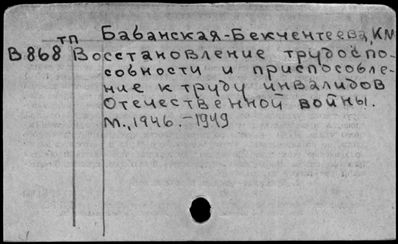 тп Бабанская-Бекчентеева, КМ
В868 Восстановление трудоспо-
собности и приспособле-
ние к труду инвалидов
Отечественной войны.
М., 1946.-1949